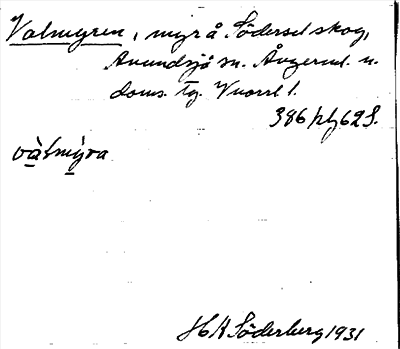 Valmyren, myr å Södersel skog,
Anundsjö sn. Ångerml. n.
doms. tg. Vnorrl l.
386/rtg62 S.
våtmyra
H A Söderberg 1931